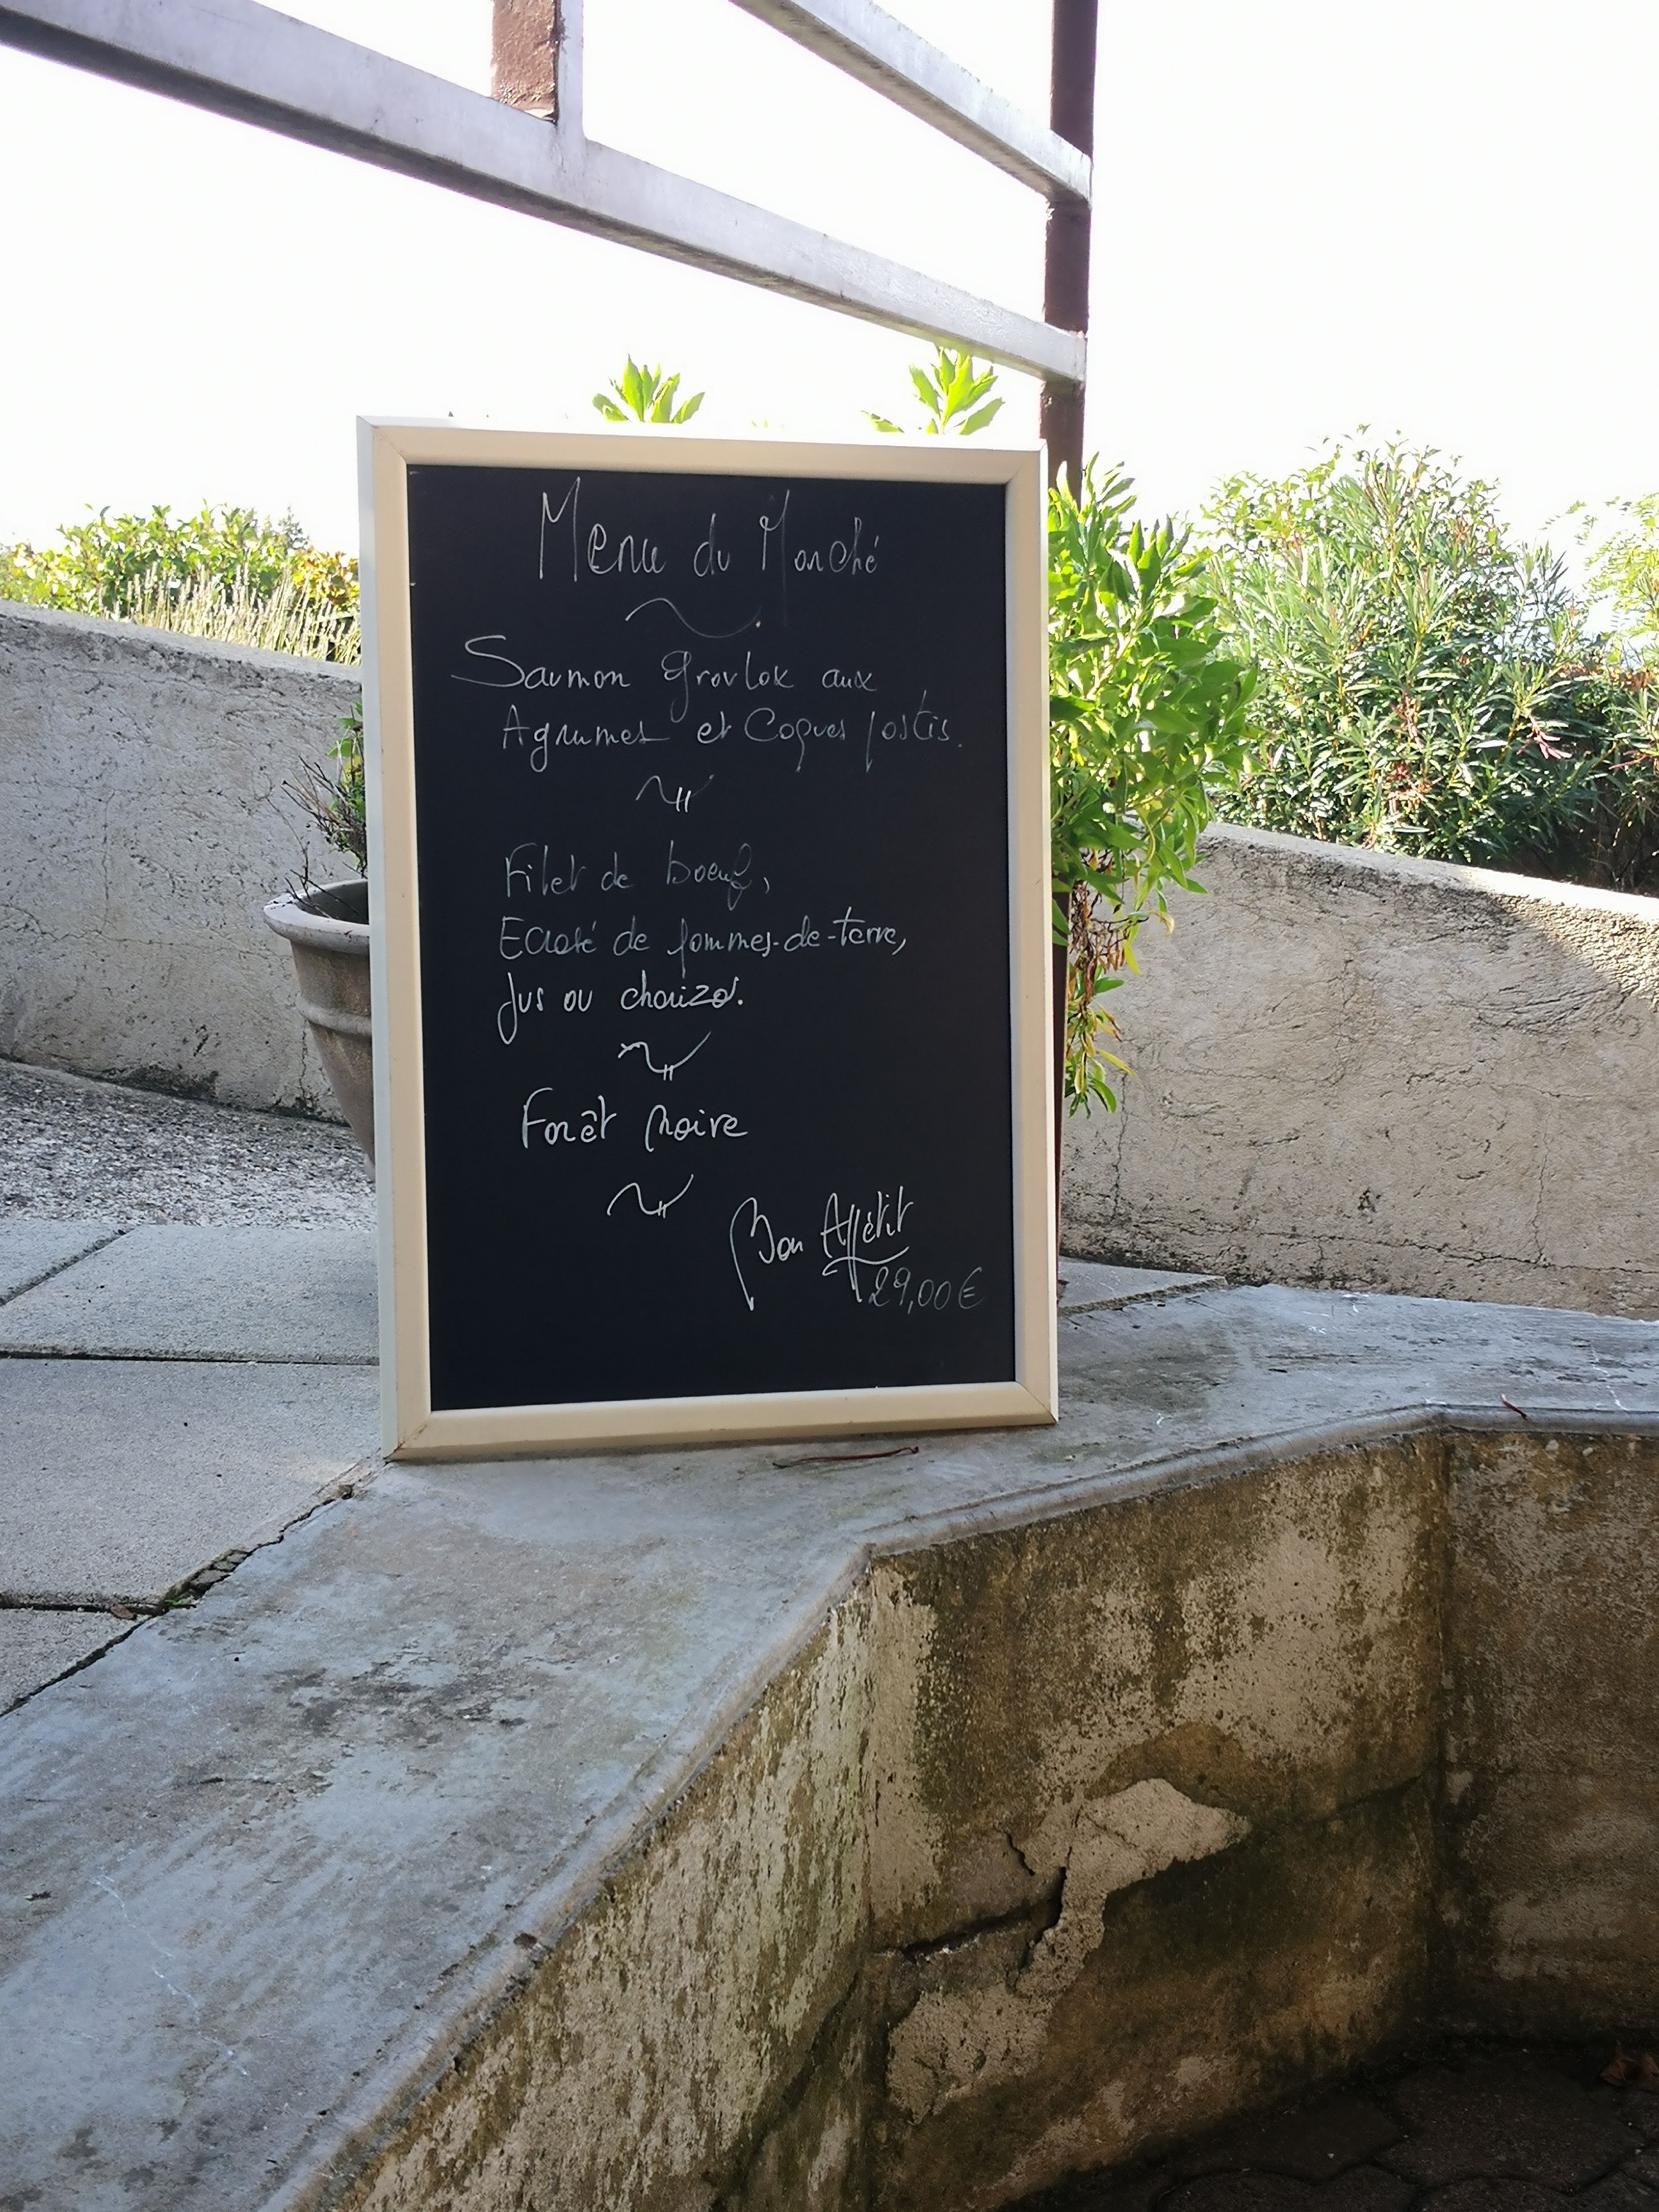 Menu du Marché
Saumon Gravlax aux
Agrumes et Coques pastis.
Filet de boeuf,
Ecrasé de pommes-de-terre,
Jus au chorizo.
Forêt Noire
Bon Appétit
29,00€